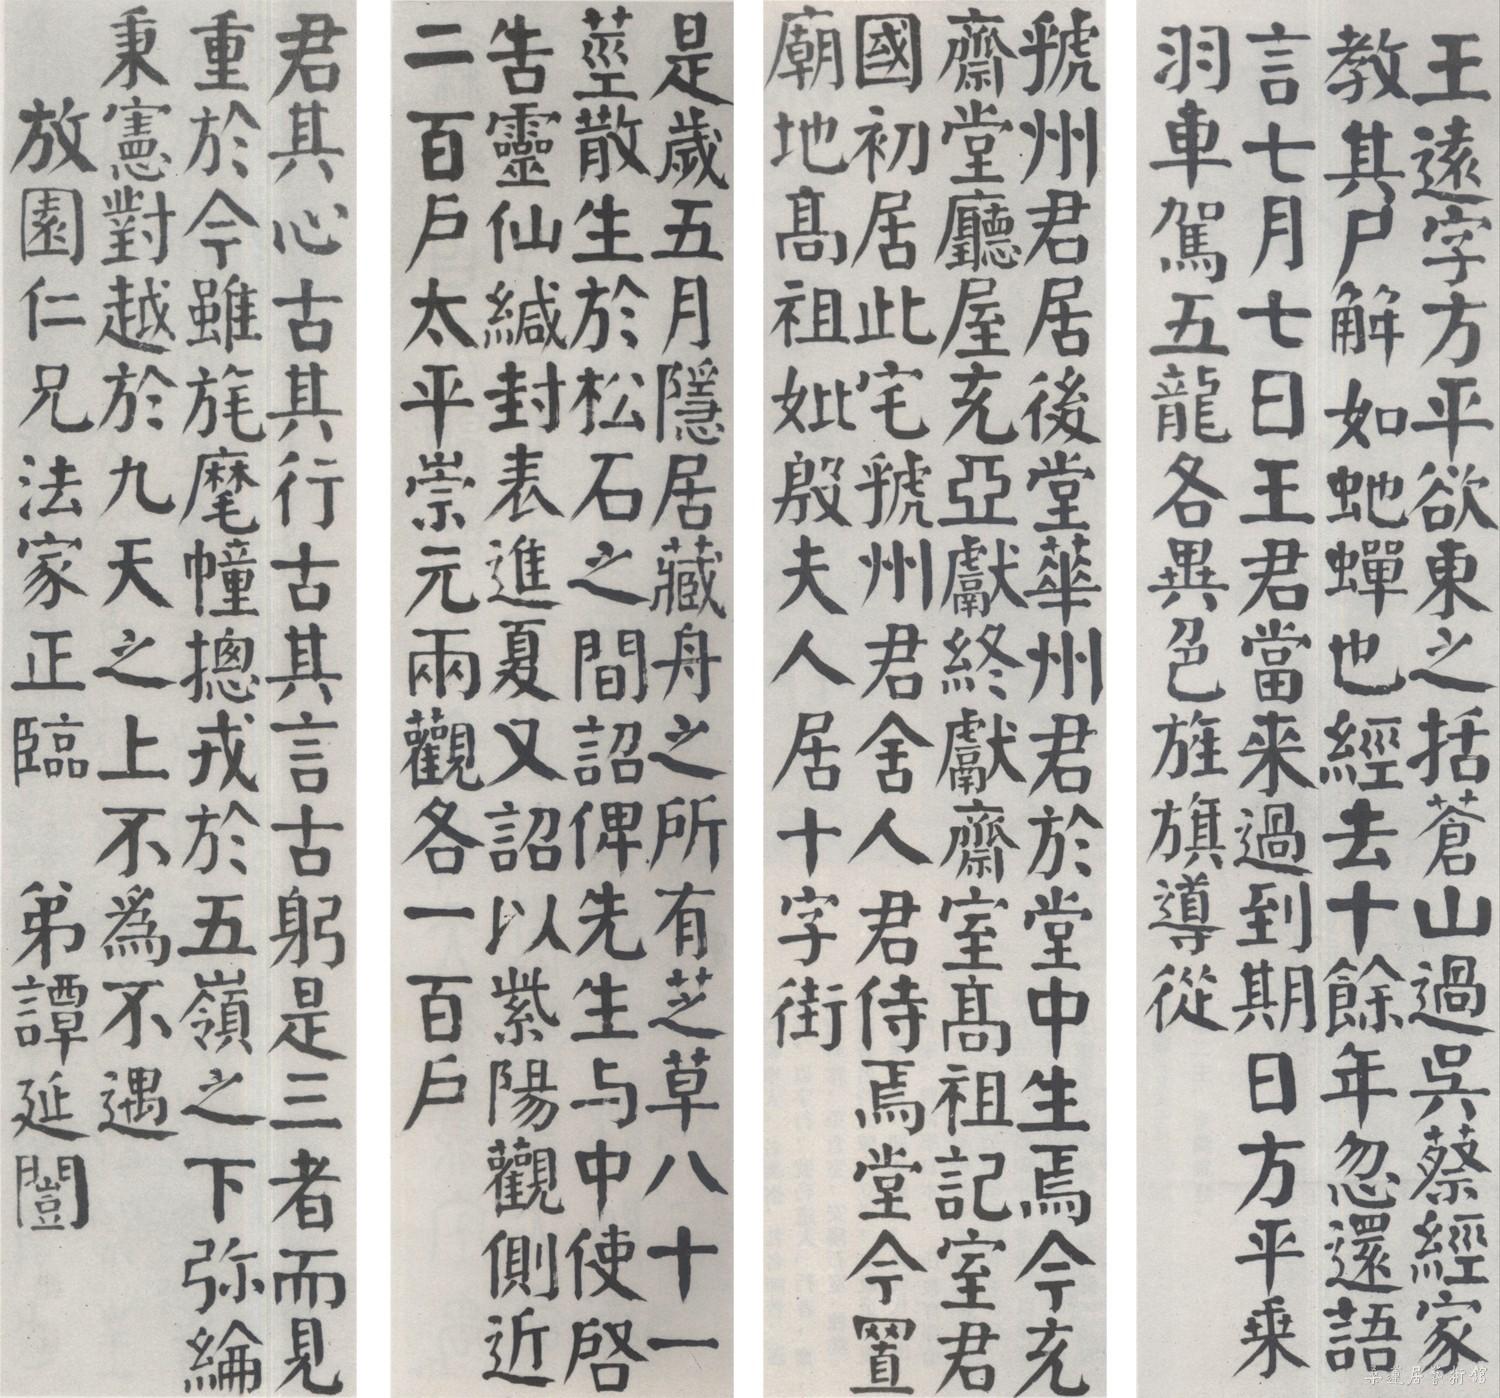 王遠字方平欲東之括蒼山過吳蔡經家
教其尸解如虵蟬也經去十餘年忽還語
言七月七日王君當来過到期日方平乗
羽車駕五龍各異色旌旗導從
虢州君居後堂華州君於堂中生焉今充
齋堂廳屋充亞獻終獻齋室高祖記室君
國初居此宅虢州君舍人君侍焉堂今置
廟地高祖妣殷夫人居十字街
是歲五月隱居藏舟之所有芝草八十一
莖散生於松石之間詔俾先生与中使啓
告靈仙緘封表進夏又詔以紫陽觀側近
二百戶太平崇元兩觀各一百戶
君其心古其行古其言古躬是三者而見
重於今雖旄麾幢摠戎於五嶺之下弥綸
秉憲對越於九天之上不為不遇
放園仁兄法家正臨 弟譚延闓
華蓮居藝術館